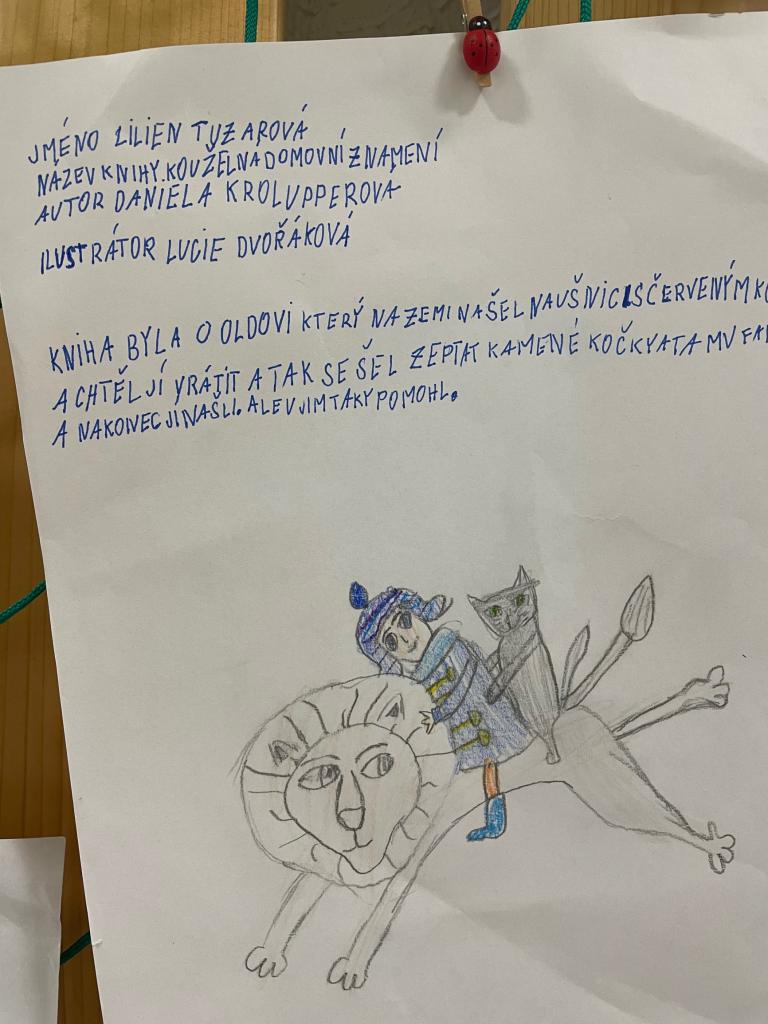 JMÉNO LILIEN TYZAROVÁ
NÁZEV KNIHY. KOUŽELNA DOMOVNÍ ZNAMENÍ
AUTOR DANIELA KROLUPPEROVÁ
ILUSTRÁTOR LUCIE DVOŘÁKOVÁ
KNIHA BYLA O OLDOVI KTERÝ NA ZEMI NAŠEL NAUŠNICI S ČERVENÝM
A CHTĚL JÍ VRÁTIT A TAK SE ŠEL ZEPTAT KAMENÉ KOČKY A TA MU
A NAKONEC JI NAŠLI. A LEV JIM TAKY POMOHL.